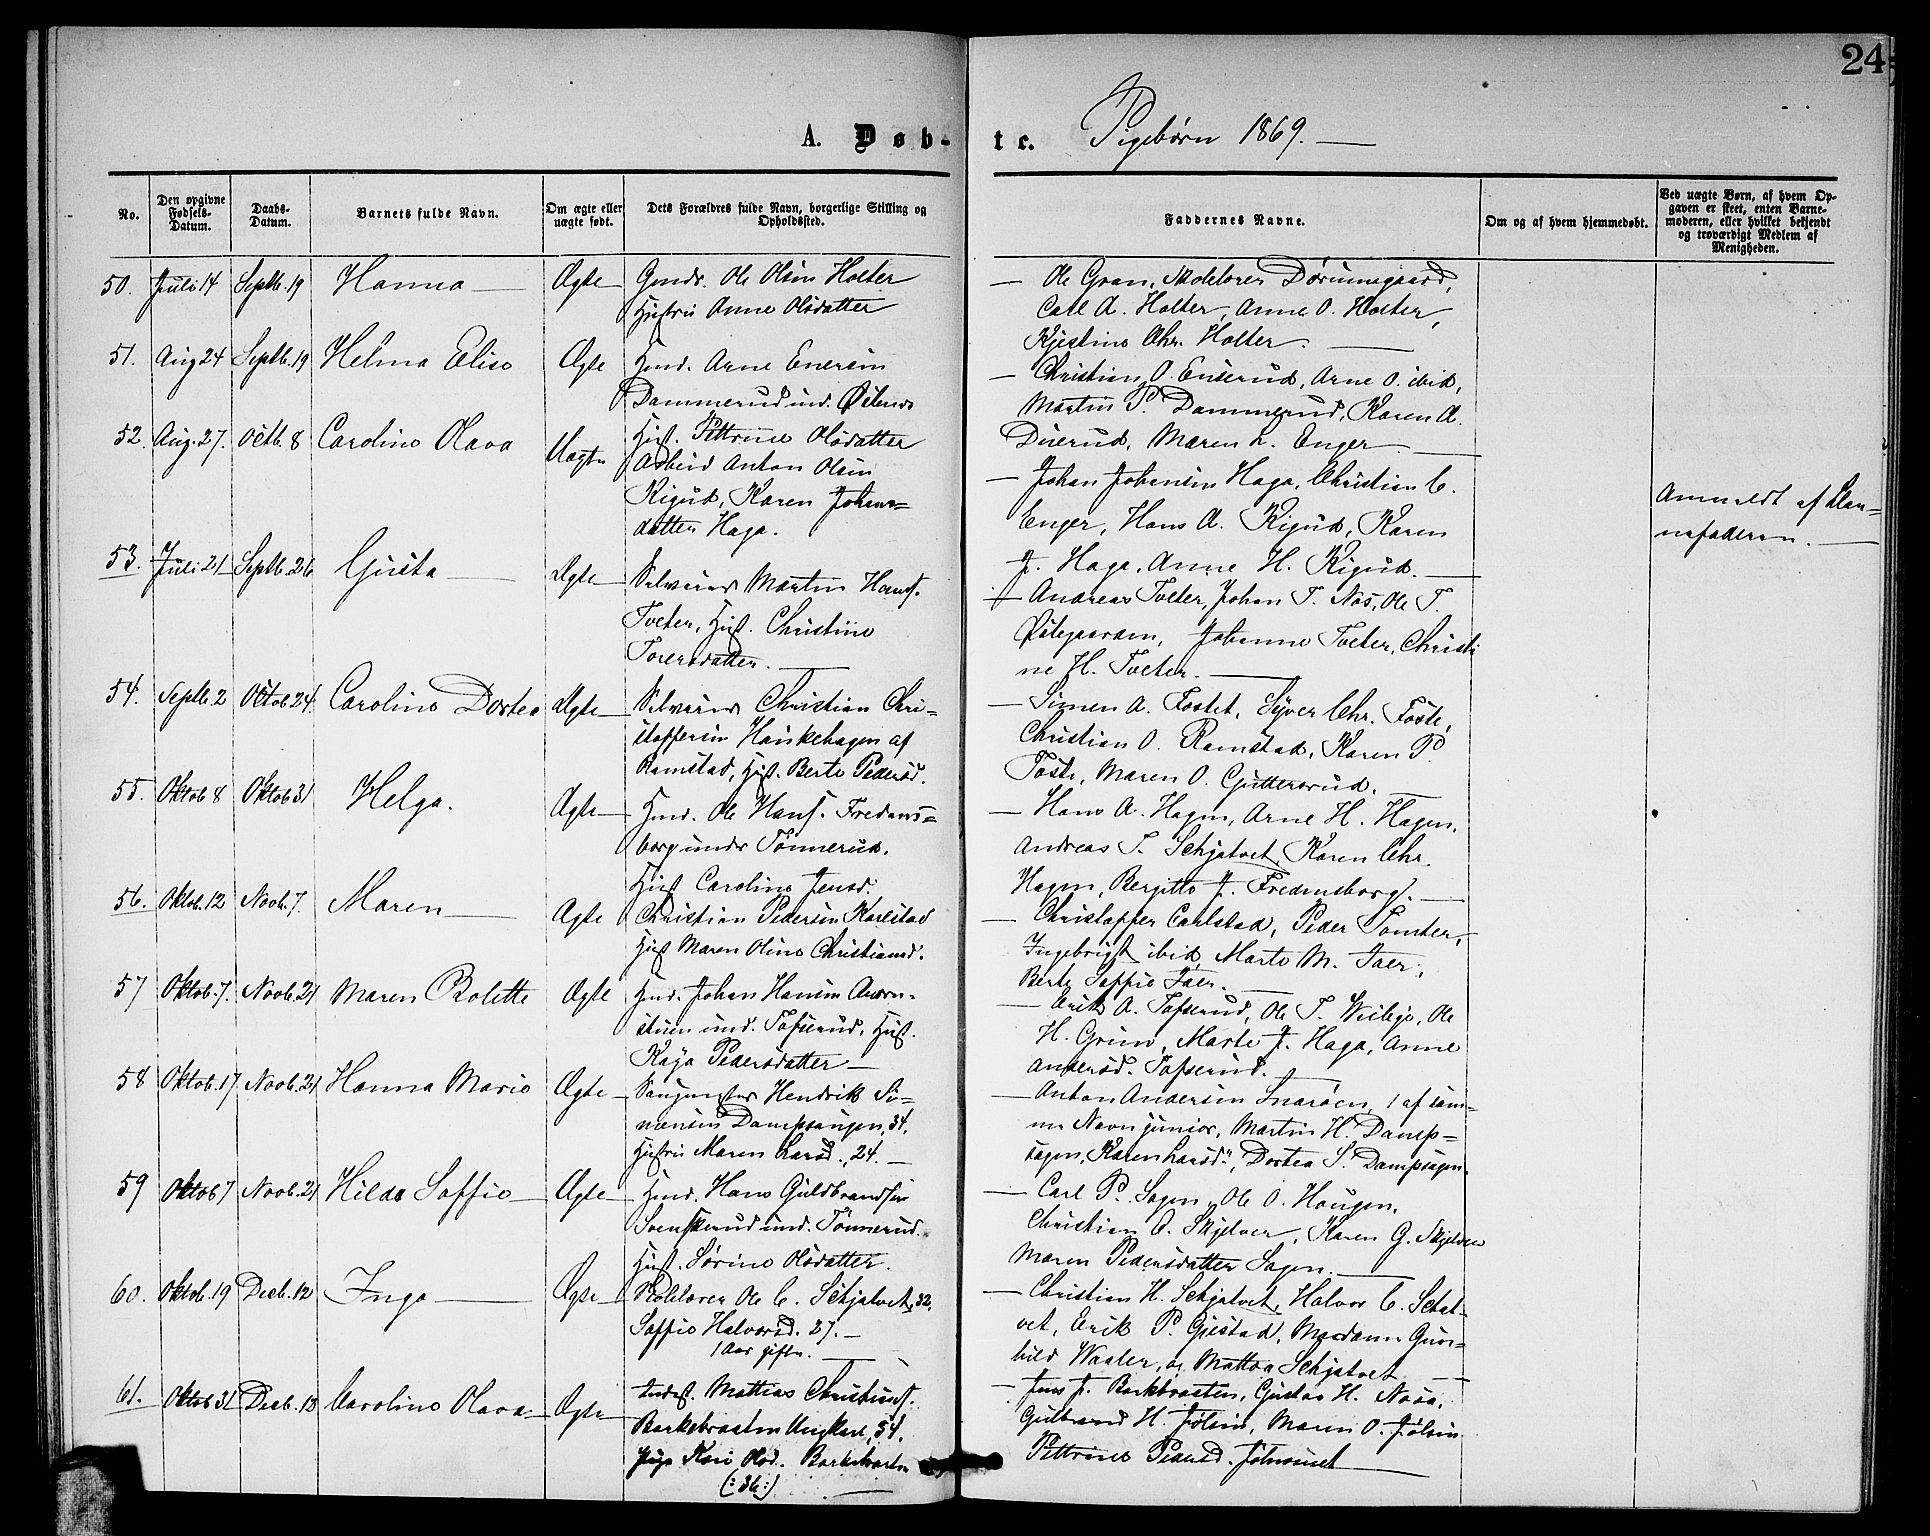 24
A. Døb-
te.
Pigebørn 1869.
No.
Den opgivne Fødsels-Datum.
Daabs-Datum.
Barnets fulde Navn.
Om ægte eller uægte født.
Dets Forældres fulde Navn, borgerlige Stilling og Opholdssted.
Faddernes Navne.
Om og af hvem hjemmedøbt.
Ved uægte Børn, af hvem Opgaven er skeet, enten Barnemoderen, eller hvilket bekjendt og troværdigt Medlem af Menigheden.
50. Juli 14 Septb. 19 Hanna Ægte Gmdr. Ole Olsen Holter
Hustru Anne Olsdatter
Ole Gran, Skolelærer
Carl A. Holter, Anne O. Holter,
Kjestine Chr. Holter.
51. Aug 24 Septb. 19 Helma Elise Ægte Hmd. Arne Enersen
Dammerud und.
Hust. Pettrine Olsdatter
Christian O. Enserud, Arne O. ibid,
Martin P. Dammerud, Karen A.
Maren L. Enger
52. Aug. 27. Octb. 8 Caroline Olava Uægte Arbeid Anton Olsen
Kigud, Karen Johans=
datter Haga.
Johan Johansen Haga, Christian C.
Enger, Hans A. Kigud, Karen
J. Haga, Anne H. Kigud.
Anmeldt af Bar=
nefaderen.
53. Juli 21 Septb. 26 Gusta Ægte Selveier Martin Hans.
Tveter, Hust. Christine
Toversdatter.
Andreas Tveter, Johan T. Næs, Ole T.
Østegaarden, Johanne Tveter, Christi
ne H. Tveter.
54. Septb. 2 Octob 24. Caroline Dortea Ægte Selveier Christian Chri=
stoffersen Haukehagen af
Ramstad, Hust. Berte Pedersd.
Simen A. Fostet, Syver Chr. Foste,
Christian O. Ramstad, Karen P.
Foste, Maren O. Guttersrud.
55. Oktob 8 Oktob 31 Helga. Ægte Hmd. Ole Hans. Fredens=
borg under Tønnerud.
Hust Caroline Jensd.
Hans A. Hagen, Arne H. Hagen,
Andreas T. Schjatvet, Karen Chr.
Hagen, Bergitte J. Fredensborg.
56. Oktob. 12 Novb. 7. Maren Ægte Christian Pedersen Karlstad
Hust Maren Oline Christiansd.
Christopher Carlstad, Peder Tomter,
Ingebrigt ibid, Marte M. Faer,
Berte Soffie Faer.
57 Oktob. 7. Novb. 21 Maren Bolette Ægte Hmd. Johan Hansen
stuen und. Tofserud, Hust.
Kaja Pedersdatter
Erik A. Tofserud, Ole T. Ole
H. Grini, Marte J. Haga, Anne
Andersd. Tofserud.
58 Oktob. 17 Novb. 21 Hanna Marie Ægte Saugmester Hendrik Si=
mensen Dampsaugen, 34,
Hustru Maren Larsd., 24.
Anton Andersen Snarøen, 1 af sam=
me Navn junior, Martin H. Damp=
sagen, Karen Larsd., Dortea S. Dampsagen.
59 Oktob 7 Novb. 21 Hilda Soffie Ægte Hmd. Hans Guldbrandsen
Svenskerud und. Tønnerud.
Hust. Sørine Olsdatter.
Carl P. Sagen, Ole O. Haugen,
Christian O. Skjelver, Karen G. Skjelver
Maren Pedersdatter Sagen.
60. Oktob. 19 Decb. 12 Inga Ægte Skolelærer Ole C. Schjatvet, 32,
Soffie Halvorsd. 27.
1 Aar gifte.
Christian H. Schjatvet, Halvor C. Schat-
vet, Erik P. Gjestad, Madam Gun-
hild Waaler, og Mattea Schjatvet
61. Oktob 31 Decb. 12 Caroline Olava Ægte Inderst. Mattias Christians.
Barkebraaten Ungkarl, 34,
Pige Kari Olsd. Barkebraaten
(:36:)
Jens J. Barkbraaten, Gustav H. Næsa,
Gulbrand H. Jølsen, Maren O. Jølsen
Pettrine Pedersd.